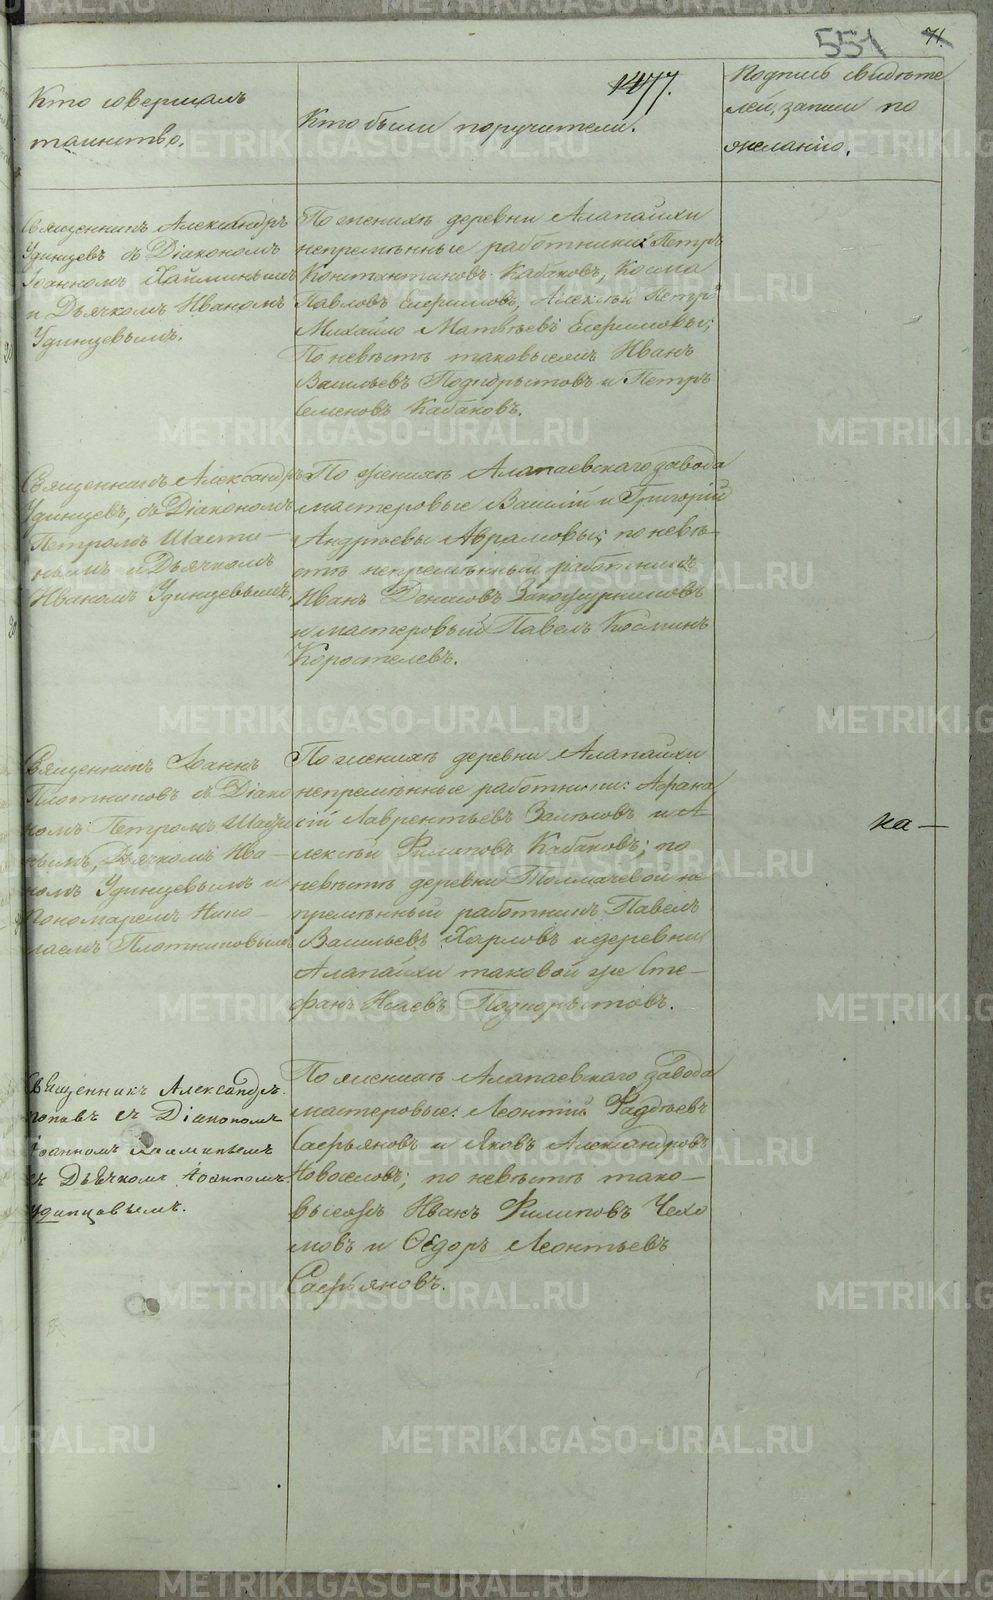 551
71.
1477.
Кто совершалъ
таинство.
Кто были поручители.
Подпись свидѣте
лей, записи по
желанію.
Священникъ Александръ
Удинцевъ съ Діакономъ
Іоанномъ
и Дьячкомъ Иваномъ
Удинцевымъ.
По женихѣ деревни Алапаихи
непремѣнные работники: Петръ
Константиновъ Кабаковъ, Косма
Павловъ Ефимовъ, Алексѣй Петръ
Михайло Матвѣевъ Ефимовы;
По невѣстѣ таковыежъ Иванъ
Васильевъ Подкорытовъ и Петръ
Семеновъ Кабаковъ.
Священникъ Александръ
Удинцевъ, съ Діакономъ
Петромъ
нымъ и Дьячкомъ
Иваномъ Удинцевымъ.
По женихѣ Алапаевскаго завода
мастеровые Василій и Григорій
Андреевы Абрамовы; по невѣ-
стѣ непремѣнный работникъ
Иванъ Денисовъ
и мастеровый Павелъ Козминъ
Коростелевъ.
Священникъ Іоаннъ
Плотниковъ съ Діако
номъ Петромъ
нымъ, Дьячкомъ Ива-
номъ Удинцевымъ и
Пономаремъ Нико-
лаемъ Плотниковымъ
По женихѣ деревни Алапаихи
непремѣнные работники: Афана
сій Лаврентьевъ и А-
лексѣй Филиповъ Кабаковъ; по
невѣстѣ деревни Толмачевой не
премѣнный работникъ Павелъ
Васильевъ Харловъ и деревни
Алапаихи таковой же Сте-
фанъ Исаевъ Подкорытовъ.
на —
Священникъ Александръ
Поповъ съ Діакономъ
Іоанномъ
съ Дьячкомъ Іоанномъ
Удинцовымъ.
По женихѣ Алапаевскаго завода
мастеровые: Леонтій Фадѣевъ
Сафьяновъ и Яковъ Александровъ
Новоселовъ; по невѣстѣ тако-
выежъ Иванъ Филиповъ Чехо
мовъ и Ѳедоръ Леонтьевъ
Сафьяновъ.
METRIKI.GASO-URAL.RU